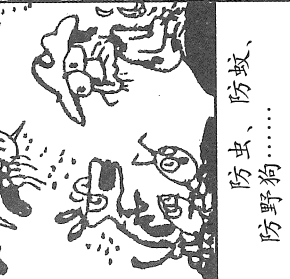 防虫、防蚊、
防野狗……